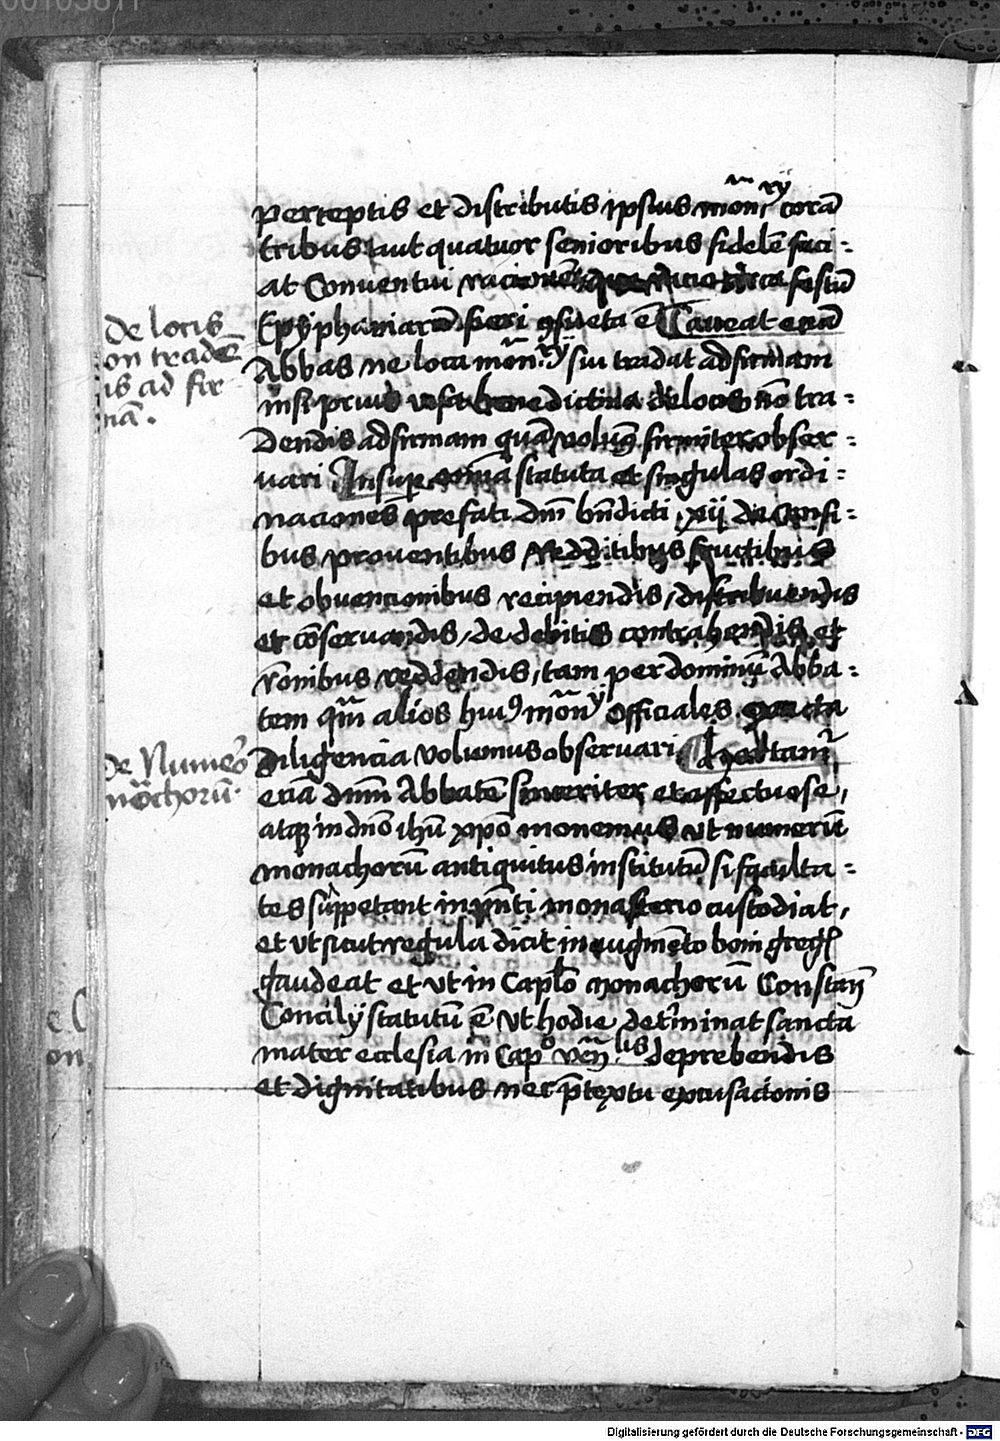 perceptis et distributis ipsius mon̄rij corā
tribus aut quatuor senioribus fidelē faci-
at Conuentui racionē que racio circa festū
Epyphaniarū fieri ꝯsueta ē Caueat eciā
Abbas ne loca mōn̄rij sui tradat ad firmam
nisi prius visa benedictina de locis nō tra-
dendis ad firmam quā volumꝰ firmiter obser-
uari Insuꝑ om̄ia statuta et singulas ordi-
naciones prefati dn̄i bn̄dicti xij de Censi-
bus prouentibus Redditibus fructibus
et obuencionibus recipiendis, distribuendis
et cōseruandis, de debitis contrahendis et
rōnibus reddendis, tam per dominū Abba-
tem qm̄ alios huiꝰ mōn̄rij Officiales exacta
diligencia volumus observari Hortamꝰ
eciā dn̄m Abbatē sinceriter et affectuose,
atqꝫ in dn̄o ihū xp̄o monemus vt numerū
monachorū antiquitus institutū si faculta-
tes suppetant in pn̄ti monasterio custodiat,
et vt sicut regula dicit in augmēto boni gregꝭ
gaudeat et vt in Capłō monachorū Constan̄
Concilij statutū ē Vt hodie det̄minat sancta
mater ecclesia in Capº ven̄lis de prebendis
et dignitatibus nec p̄textu excusacionis
de locis
on tradēdꝭ
is ad fir
mā.
de Numero
mōchorū.
e l
on
Digitalisierung gefördert durch die Deutsche Forschungsgemeinschaft - DFG